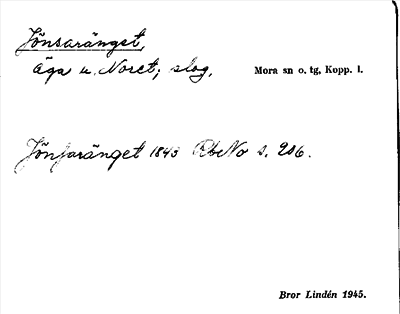 Jönsaränget,
äga u. Noret; slog. Mora sn o. tg, Kopp. l.
Jönsaränget 1845 RbNo s. 206.
Bror Lindén 1945.